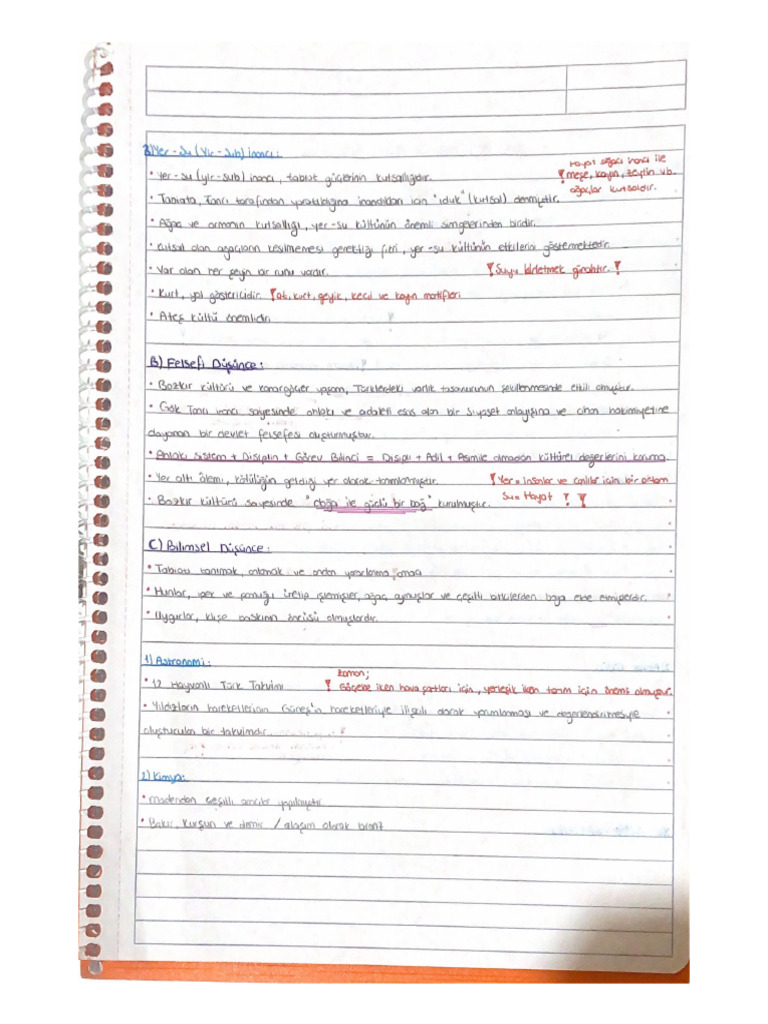 3) Yer-Su (Yir-Sub) İnancı:
• Yer-su (yir-sub) inancı, tabiat güçlerinin kutsallığıdır.
Hayat ağacı inancı ile
! meşe, kayın, zeytin vb.
ağaçlar kutsaldır.
• Tabiata, Tanrı tarafından yaratıldığına inandıkları için "ıduk" (kutsal) denmiştir.
• Ağaç ve ormanın kutsallığı, yer-su kültünün önemli simgelerinden biridir.
• Kutsal olan ağaçların kesilmemesi gerektiği fikri, yer-su kültünün etkilerini göstermektedir.
• Var olan her şeyin bir ruhu vardır. ! Suyu kirletmek günahtır. !
• Kurt, yol göstericidir. ! at, kurt, geyik, keçi ve koyun motifleri
• Ateş kültü önemlidir.
B) Felsefi Düşünce:
• Bozkır kültürü ve konargöçer yaşam, Türklerdeki varlık tasavvurunun şekillenmesinde etkili olmuştur.
• Gök Tanrı inancı sayesinde ahlakı ve adaleti esas alan bir siyaset anlayışına ve cihan hakimiyetine
dayanan bir devlet felsefesi oluşturmuştur.
• Ahlaki Sistem + Disiplin + Görev Bilinci = Disipli + Adil + Asimile olmadan kültürel değerlerini koruma.
• Yer altı âlemi, kötülüğün geldiği yer olarak tanımlamıştır. ! Yer = İnsanlar ve canlılar için bir ortam
Su = Hayat ! !
• Bozkır kültürü sayesinde "doğa ile güçlü bir bağ" kurulmuştur.
C) Bilimsel Düşünce:
• Tabiatı tanımak, anlamak ve ondan yararlanma amacı
• Hunlar, ipek ve pamuğu üretip işlemişler, ağaç oymuşlar ve çeşitli bitkilerden boya elde etmişlerdir.
• Uygurlar, klişe baskının öncüsü olmuşlardır.
1) Astronomi:
• 12 Hayvanlı Türk Takvimi
zaman;
! Göçebe iken hava şartları için, yerleşik iken tarım için önemli olmuştur.
• Yıldızların hareketlerinin Güneş'in hareketleriyle ilişkili olarak yorumlanması ve değerlendirilmesiyle
oluşturulan bir takvimdir.
2) Kimya:
• madenden çeşitli aracılar yapılmıştır.
• Bakır, Kurşun ve demir / alaşım olarak bronz